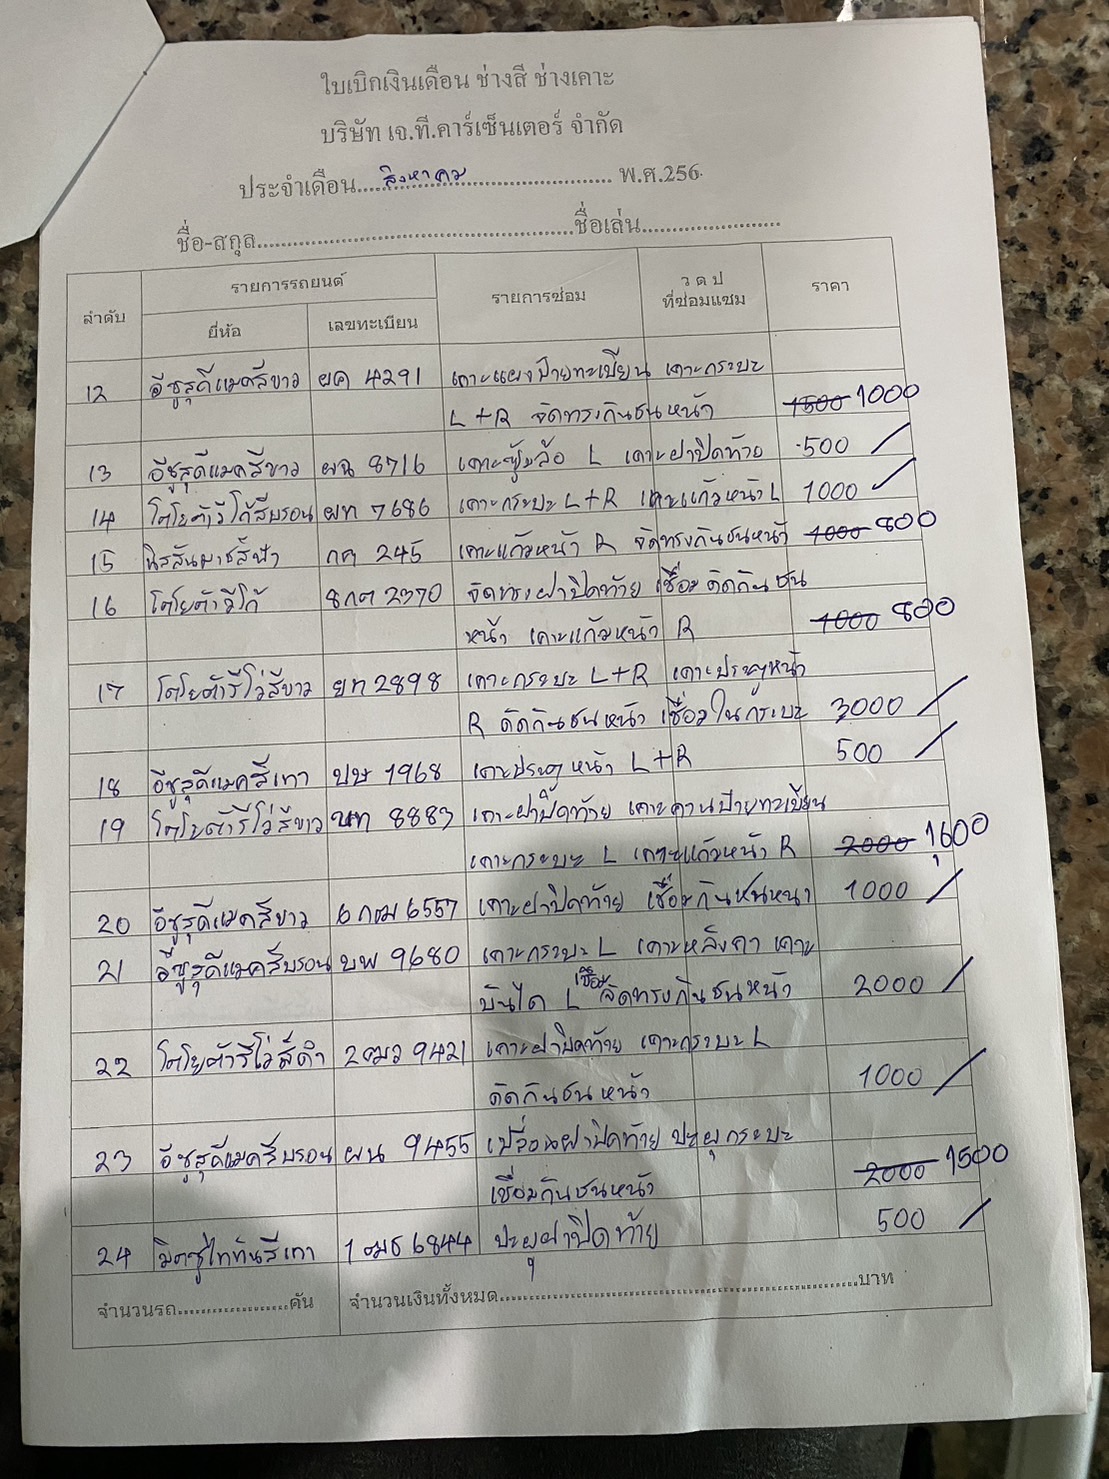 ใบเบิกเงินเดือน ช่างสี ช่างเคาะ
บริษัท เจ.ที.คาร์เซ็นเตอร์ จำกัด
ประจำเดือน....สิงหาคม.... พ.ศ.256
ชื่อ-สกุล....ชื่อเล่น....
ลำดับ รายการรถยนต์ รายการซ่อม ว ด ป ที่ซ่อมแซม ราคา
ยี่ห้อ เลขทะเบียน
12 อีซูสุดีแมคสีขาว ผค 4291 เคาะแผงป้ายทะเบียน เคาะกระบะ
L+R จัดทรงกันชนหน้า 1500 1000
13 อีซูสุดีแมคสีขาว ผฉ 8716 เคาะซุ้มล้อ L เคาะฝาปิดท้าย 500 /
14 โตโยต้ารีโว้สีบรอน ผท 7686 เคาะกระบะ L+R เคาะแก้มหน้า L 1000 /
15 นิสสันมาชสีฟ้า กค 245 เคาะแก้มหน้า R จัดทรงกันชนหน้า 1000 800
16 โตโยต้าวีโก้ 8กต 2370 จัดทรงฝาปิดท้าย เชื่อม ดัดกันชน
หน้า เคาะแก้มหน้า R 1000 800
17 โตโยต้ารีโว่สีขาว ยท 2898 เคาะกระบะ L+R เคาะประตูหน้า
R ดัดกันชนหน้า เชื่อมในกระบะ 3000 /
18 อีซูสุดีแมคสีเทา บษ 1968 เคาะประตูหน้า L+R 500 /
19 โตโยต้ารีโว่สีขาว 8883 เคาะฝาปิดท้าย เคาะคานป้ายทะเบียน
เคาะกระบะ L เคาะแก้มหน้า R 2000 1,600
20 อีซูสุดีแมคสีขาว 6กฒ 6557 เคาะฝาปิดท้าย เชื่อมกันชนหน้า 1000 /
21 อีซูสุดีแมคสีบรอน บพ 9680 เคาะกระบะ L เคาะหลังคา เคาะ
บันได L เชื่อม จัดทรงกันชนหน้า 2000 /
22 โตโยต้ารีโว่สีดำ 2ฒว 9421 เคาะฝาปิดท้าย เคาะกระบะ L
ดัดกันชนหน้า 1000 /
23 อีซูสุดีแมคสีบรอน ผน 9455 เปลี่ยนฝาปิดท้าย ปะผุกระบะ
เชื่อมกันชนหน้า 2000 1500
24 มิตซูไททันสีเทา 1ฒธ 6844 ปะผุฝาปิดท้าย 500 /
จำนวนรถ....คัน จำนวนเงินทั้งหมด....บาท